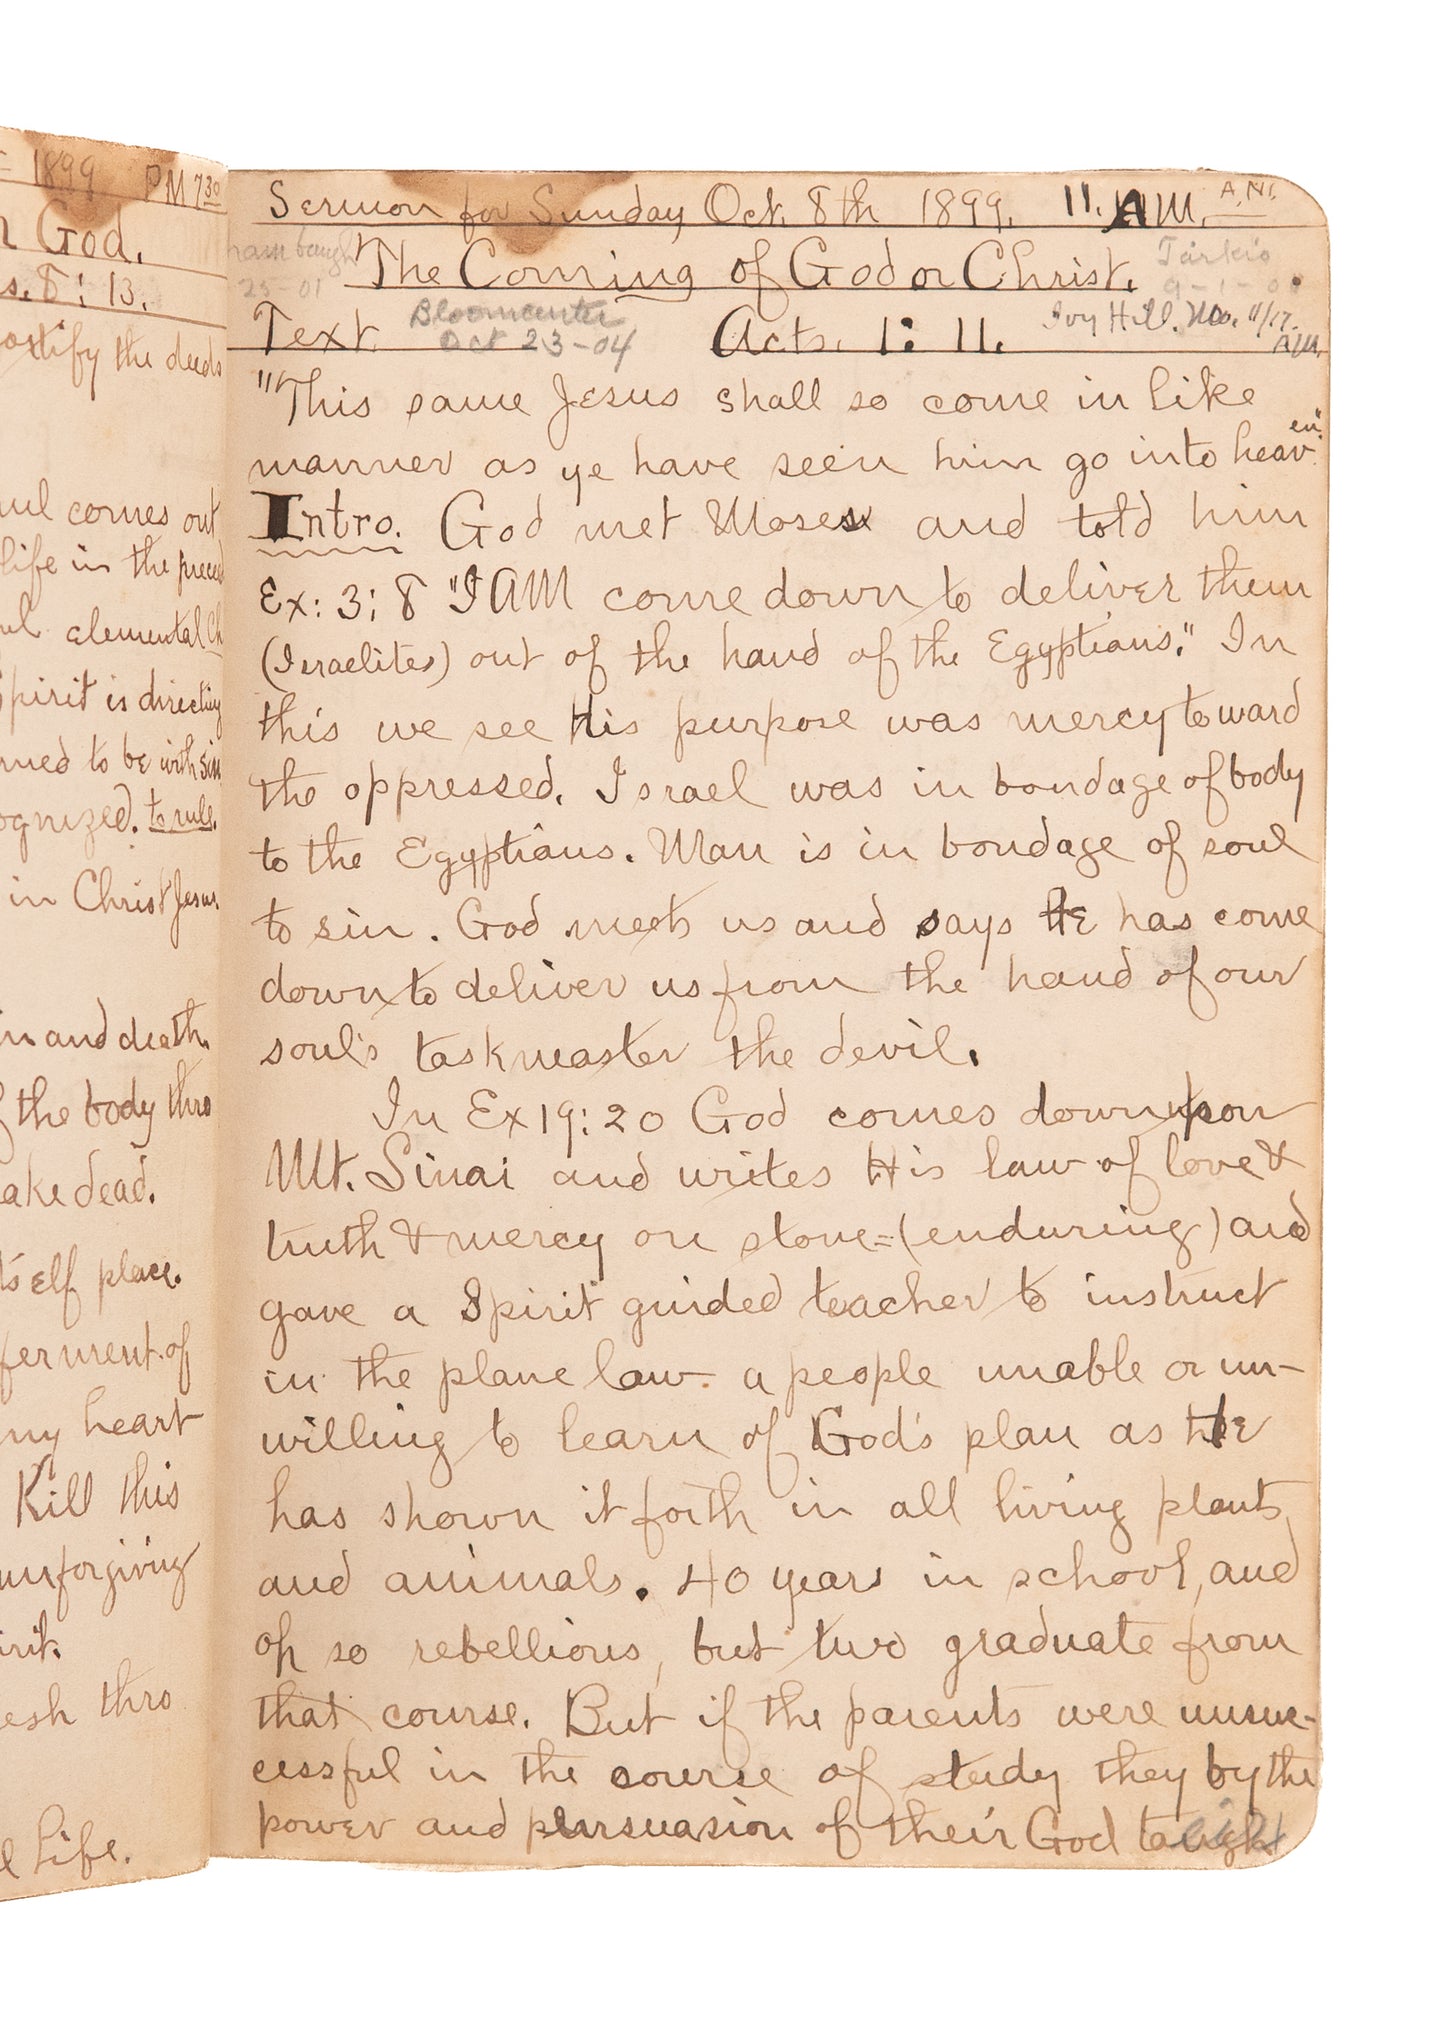 - 1899 PM 7 30
God.
s. 8 : 13.
the deeds
comes out
life in the
elemental
Spirit is directing
to be with sin
to rule.
in Christ Jesus.
and death.
the body thro
dead.
place.
ferment of
my heart
Kill this
unforgiving
thro
Life.
Sermon for Sunday Oct. 8th 1899. 11. AM. A.M.
The Coming of God or Christ. Tarkio
25-01
Text. Bloomcenter Acts. 1: 11. Ivy Hill. Mo. 11/17.
Oct 23-04 AM.
"This same Jesus shall so come in like
manner as ye have seen him go into heaven".
Intro. God met Moses and told him
Ex: 3; 8 "I AM come down to deliver them
(Israelites) out of the hand of the Egyptians." In
this we see His purpose was mercy toward
the oppressed. Israel was in bondage of body
to the Egyptians. Man is in bondage of soul
to sin. God meets us and says He has come
down to deliver us from the hand of our
soul's taskmaster the devil.
In Ex 19: 20 God comes down upon
Mt. Sinai and writes His law of love &
truth & mercy on stone=(enduring) and
gave a Spirit guided teacher to instruct
in the plane law a people unable or un-
willing to learn of God's plan as He
has shown it forth in all living plants
and animals. 40 years in school, and
oh so rebellious, but two graduate from
that course. But if the parents were unsuc-
cessful in the course of study they by the
power and persuasion of their God taught